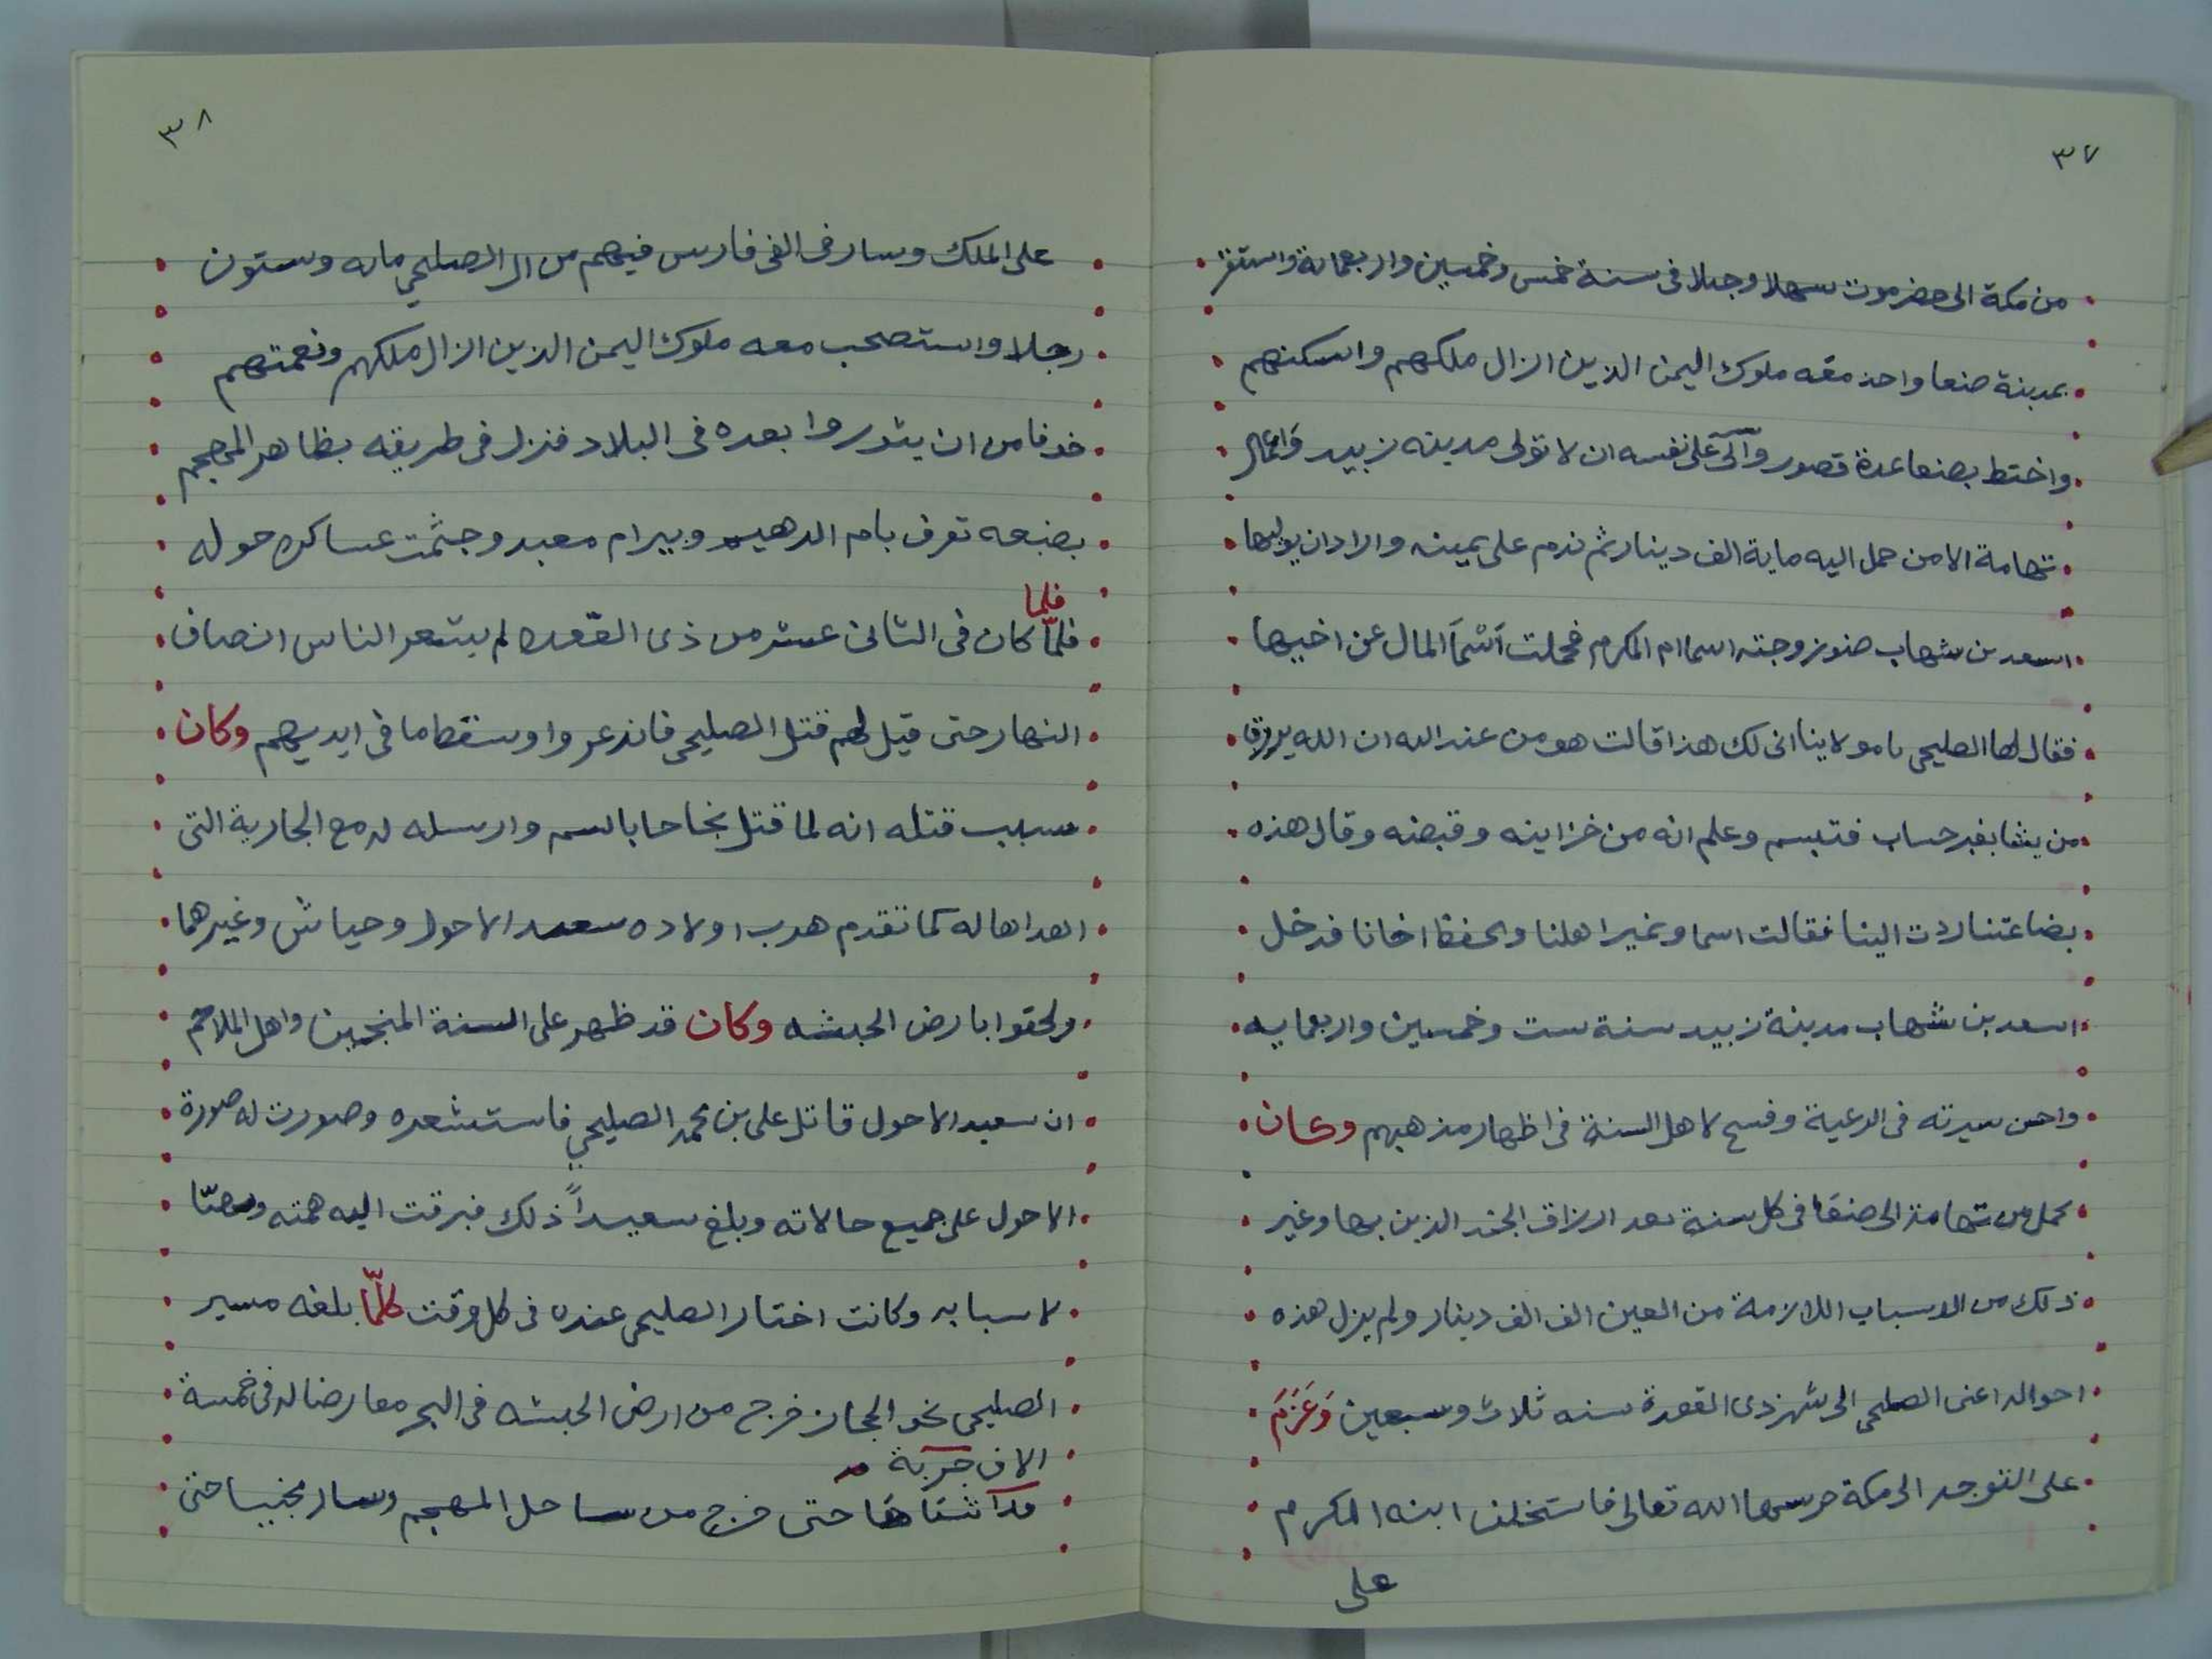 ٣٧
من مكة الى حضرموت سهلا وجبلا فى سنة خمس وخمسين واربعماية واستقر
بمدينة صنعا واخذ معه ملوك اليمن الذين ازال ملكهم واسكنهم
واختط بصنعا عدة قصور وآلى على نفسه ان لا تولى مدينه زبيد واعمال
تهامة الا من حمل اليه ماية الف دينار ثم ندم على يمينه واراد ان يوليها
اسعد بن شهاب صنو زوجته اسما ام المكرم فحملت أسْمَا المال عن اخيها
فقال لها الصليحى يا مولاتنا انى لك هذا قالت هو من عند الله ان الله يرزق
من يشا بغير حساب فتبسم وعلم انه من خزاينه وقبضه وقال هذه
بضاعتنا ردت الينا فقالت اسما ونمير اهلنا ونحفظ اخانا فدخل
اسعد بن شهاب مدينة زبيد سنة ست وخمسين واربعمايه
واحسن سيرته فى الرعية وفسح لاهل السنة فى اظهار مذهبهم وكان
يحمل من تهامة الى صنعَا فى كل سنة بعد ارزاق الجند الذين بها وغير
ذلك من الاسباب اللازمة من العين الف الف دينار ولم يزل هذه
احواله اعنى الصليحى الى شهر ذى القعدة سنه ثلاث وسبعين وَعَزَمَ
على التوجه الى مكة حرسها الله تعالى فاستخلف ابنه المكرم
على
٣٨
على الملك وسار فى الفى فارس فيهم من ال الصليحي مايه وستون
رجلا واستصحب معه ملوك اليمن الذين ازال ملكهم ونعمتهم
خوفا من ان يثوروا بعده فى البلاد فنزل فى طريقه بظاهر المهجم
بضيعه تعرف بام الدهيم وبيرام معبد وجثمت عساكره حوله
فلما
فلمّا كان فى الثانى عشر من ذى القعده لم يشعر الناس انصاف
النهار حتى قيل لهم قتل الصليحى فانذعروا وسقط ما فى ايديهم وكان
سبب قتله انه لما قتل نجاحا بالسم وارسله له مع الجارية التى
اهداها له كما تقدم هرب اولاده سعيد الاحول وجياش وغيرهما
ولحقوا بارض الحبشه وكان قد ظهر على السنة المنجمين واهل الملاحم
ان سعيد الاحول قاتل على بن محمد الصليحي فاستشعره وصورت له صورة
الاحول على جميع حالاته وبلغ سعيداً ذلك فبرقت اليه همته وتهيّا
لاسبابه وكانت اخبار الصليحى عنده فى كل وقت كلمّا بلغه مسير
الصليحى نحو الحجاز خرج من ارض الحبشه فى البحر معارضا له فى خمسة
الاف حربة
حتى خرج من ساحل المهجم وسار حتى